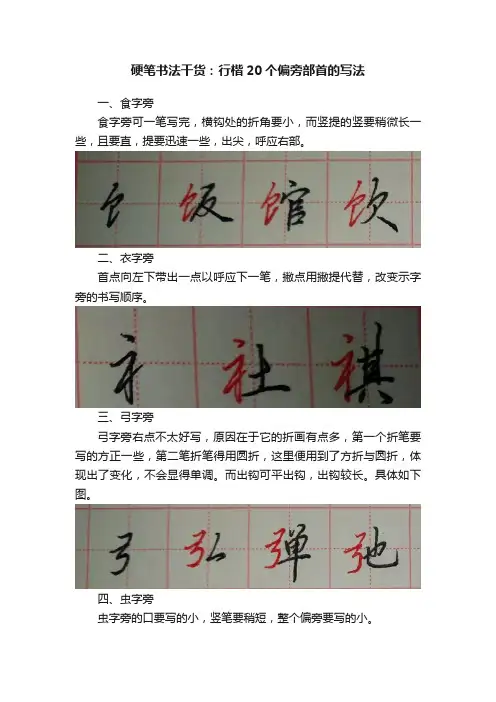 硬笔书法干货：行楷20个偏旁部首的写法
一、食字旁
食字旁可一笔写完，横钩处的折角要小，而竖提的竖要稍微长一
些，且要直，提要迅速一些，出尖，呼应右部。
饣 饭 馆 饮
二、衣字旁
首点向左下带出一点以呼应下一笔，撇点用撇提代替，改变示字
旁的书写顺序。
礻 社 祺
三、弓字旁
弓字旁右点不太好写，原因在于它的折画有点多，第一个折笔要
写的方正一些，第二笔折笔得用圆折，这里便用到了方折与圆折，体
现出了变化，不会显得单调。而出钩可平出钩，出钩较长。具体如下
图。
弓 弘 弹 弛
四、虫字旁
虫字旁的口要写的小，竖笔要稍短，整个偏旁要写的小。